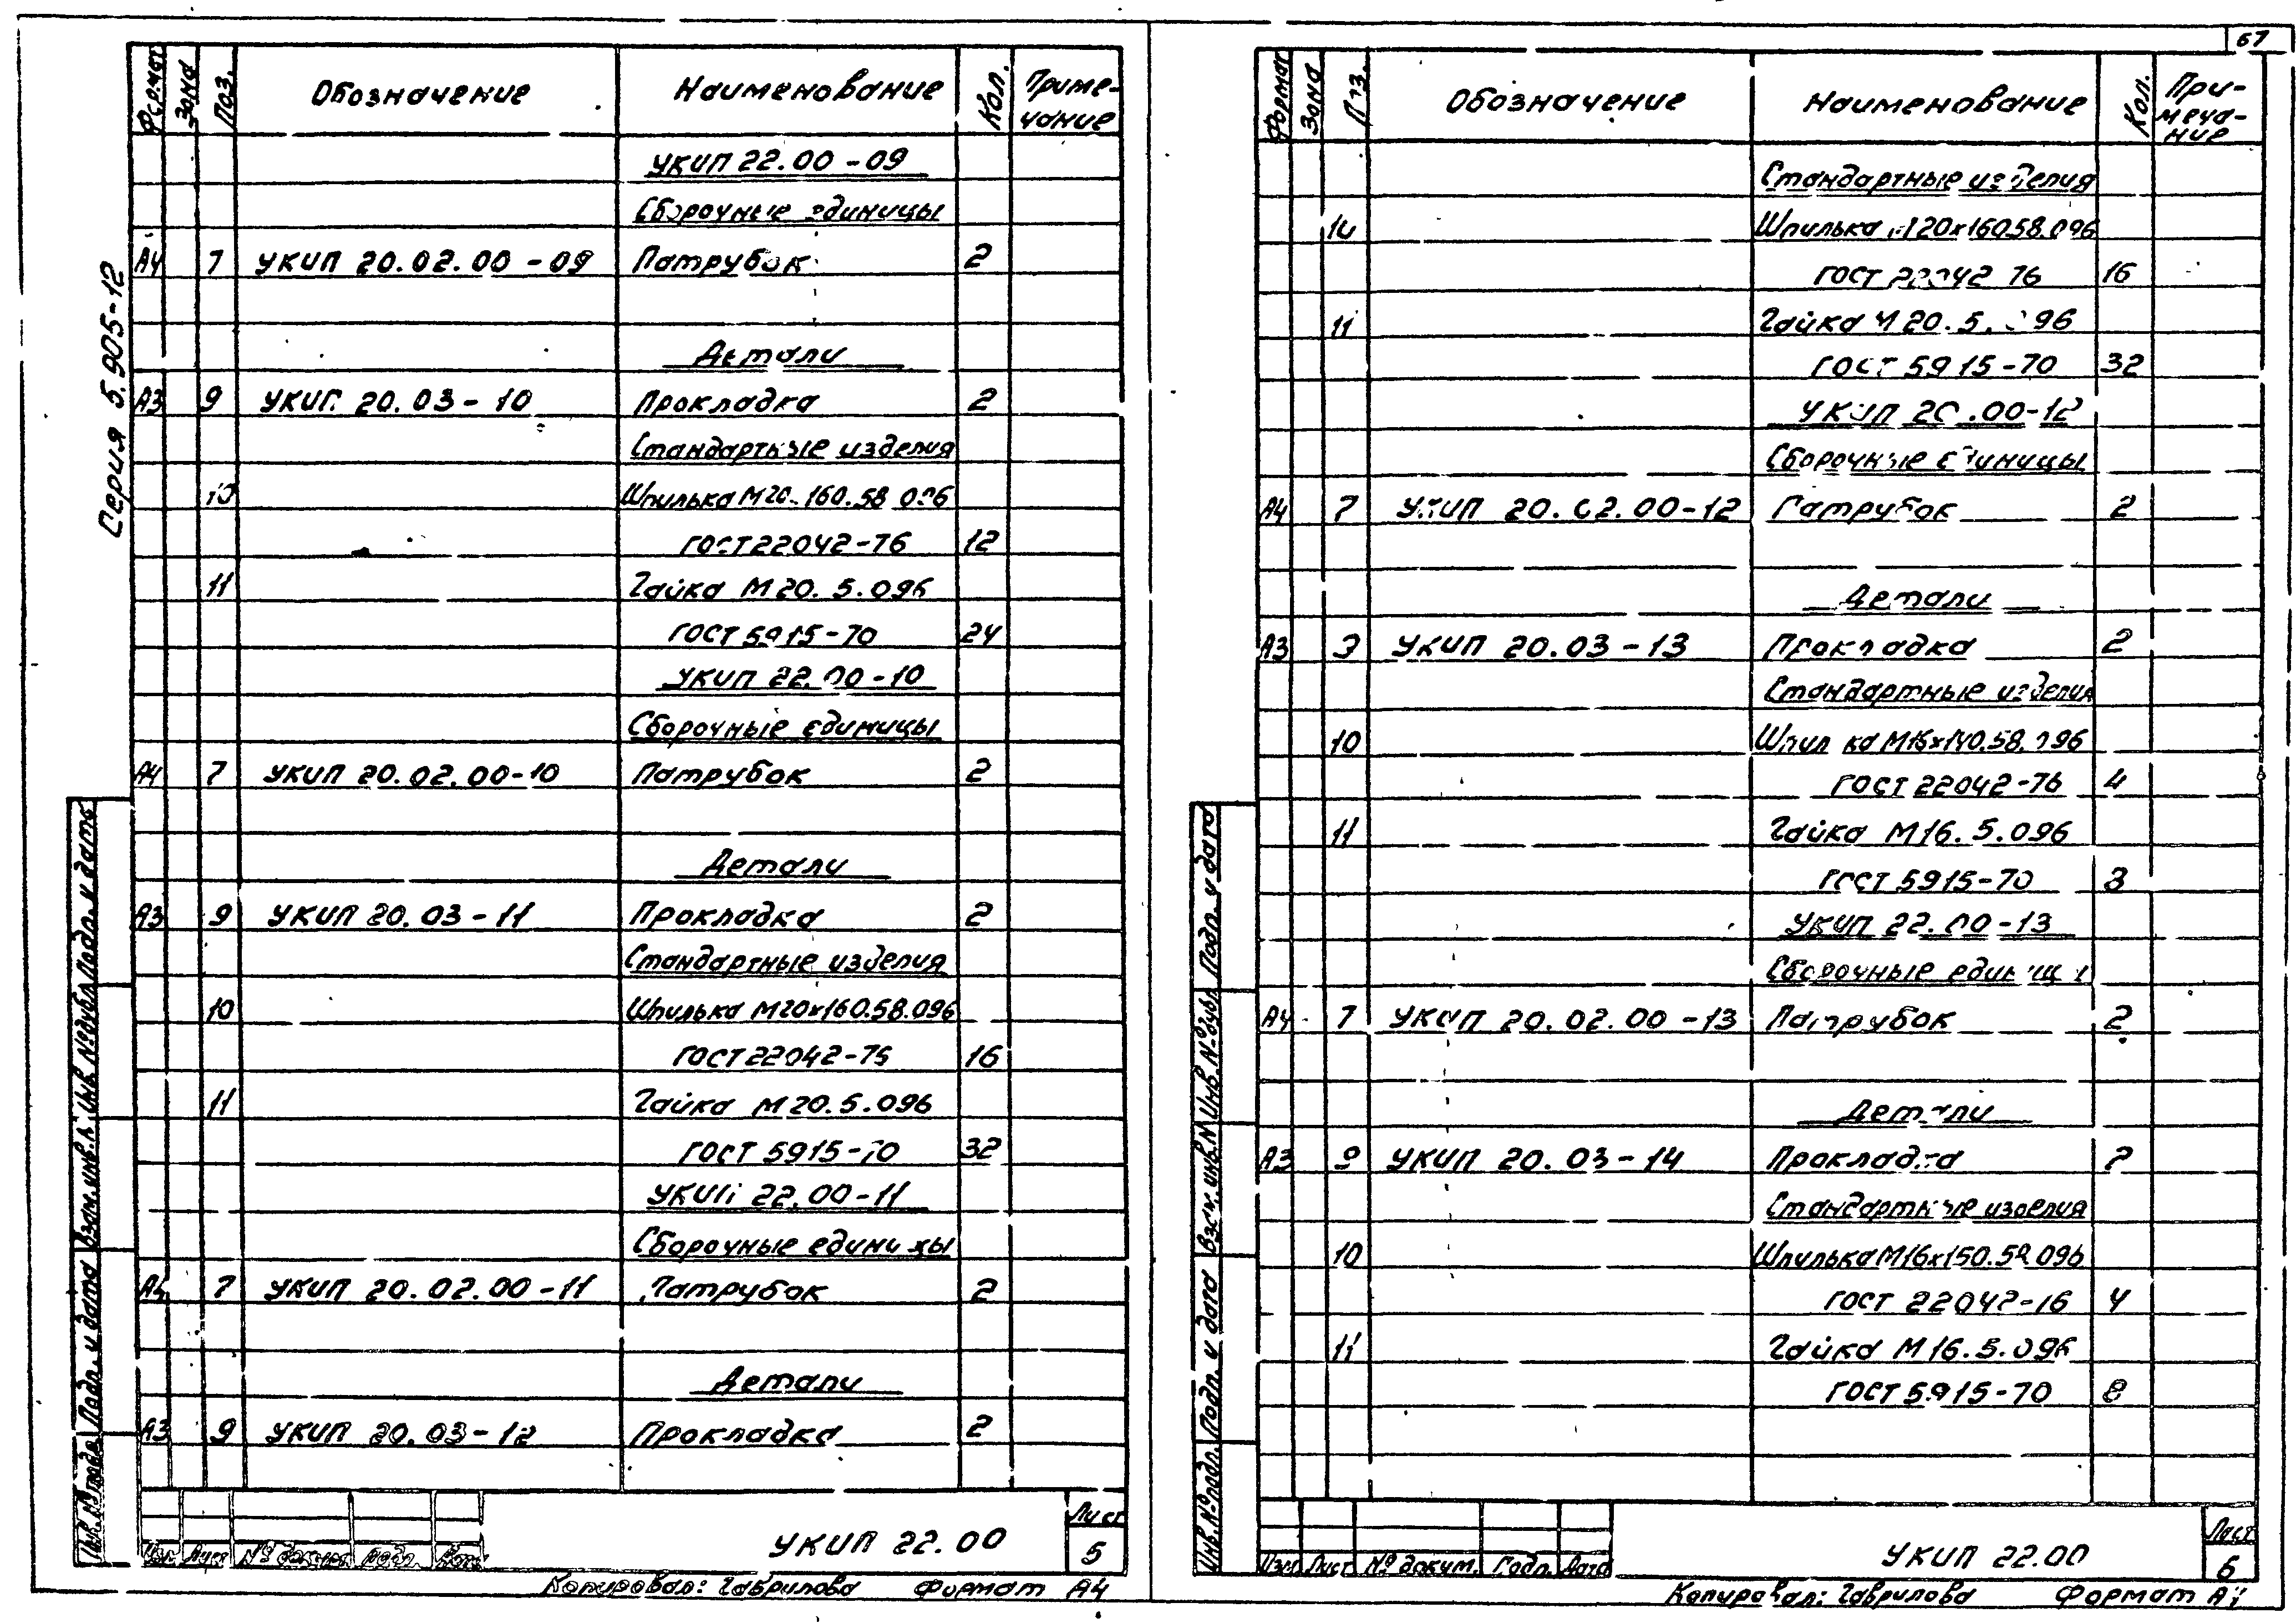 Серия 5.905-12
Формат Зона Поз. Обозначение Наименование Кол. Приме-
чание
УКИП 22.00-09
Сборочные единицы
А4 7 УКИП 20.02.00-09 Патрубок 2
Детали
А3 9 УКИП 20.03-10 Прокладка 2
Стандартные изделия
10 Шпилька М20 160.58 096
ГОСТ 22042-76 12
11 Гайка М20.5.096
ГОСТ 5915-70 24
УКИП 22.00-10
Сборочные единицы
А4 7 УКИП 20.02.00-10 Патрубок 2
Детали
А3 9 УКИП 20.03-11 Прокладка 2
Стандартные изделия
10 Шпилька М20х160.58.096
ГОСТ 22042-76 16
11 Гайка М20.5.096
ГОСТ 5915-70 32
УКИП 22.00-11
Сборочные единицы
А4 7 УКИП 20.02.00-11 Патрубок 2
Детали
А3 9 УКИП 20.03-12 Прокладка 2
Инв.№ подл. Подп. и дата Взам.инв.№ Инв.№ дубл. Подп. и дата
Изм Лист № докум. Подп. Дата
УКИП 22.00
Лист
5
Копировал: Гаврилова Формат А4
67
Формат Зона Поз. Обозначение Наименование Кол. При-
меча-
ние
Стандартные изделия
10 Шпилька М20х160.58.096
ГОСТ 22042 76 16
11 Гайка М20.5.096
ГОСТ 5915-70 32
УКИП 20.00-12
Сборочные единицы
А4 7 УКИП 20.02.00-12 Патрубок 2
Детали
А3 9 УКИП 20.03-13 Прокладка 2
Стандартные изделия
10 Шпилька М16х140.58.096
ГОСТ 22042-76 4
11 Гайка М16.5.096
ГОСТ 5915-70 8
УКИП 22.00-13
Сборочные единицы
А4 7 УКИП 20.02.00-13 Патрубок 2
Детали
А3 9 УКИП 20.03-14 Прокладка 2
Стандартные изделия
10 Шпилька М16х150.58.096
ГОСТ 22042-76 4
11 Гайка М16.5.096
ГОСТ 5915-70 8
Инв.№ подл. Подп. и дата Взам.инв.№ Инв.№ дубл. Подп. и дата
Изм Лист № докум. Подп. Дата
УКИП 22.00
Лист
6
Копировал: Гаврилова Формат А4